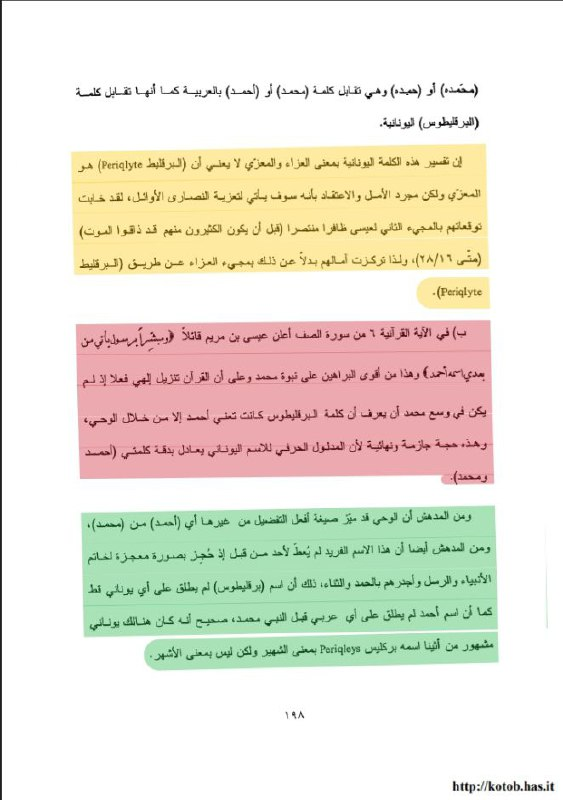 (محمّده) أو (حمده) وهي تقابل كلمة (محمد) أو (أحمد) بالعربية كما أنها تقابل كلمة
(البرقليطوس) اليونانية.
إن تفسير هذه الكلمة اليونانية بمعنى العزاء والمعزّي لا يعني أن (البرقليط Periqlyte) هو
المعزّي ولكن مجرد الأمل والاعتقاد بأنه سوف يأتي لتعزية النصارى الأوائل، لقد خابت
توقعاتهم بالمجيء الثاني لعيسى ظافرا منتصرا (قبل أن يكون الكثيرون منهم قد ذاقوا الموت)
(متّى ٢٨/١٦)، ولذا تركزت آمالهم بدلاً عن ذلك بمجيء العزاء عن طريق (البرقليط
Periqlyte).
ب) في الآية القرآنية ٦ من سورة الصف أعلن عيسى بن مريم قائلاً ﴿ومبشراً برسول يأتي من
بعدي اسمه أحمد﴾ وهذا من أقوى البراهين على نبوة محمد وعلى أن القرآن تنزيل إلهي فعلا إذ لم
يكن في وسع محمد أن يعرف أن كلمة البرقليطوس كانت تعني أحمد إلا من خلال الوحي،
وهذه حجة جازمة ونهائية لأن المدلول الحرفي للاسم اليوناني يعادل بدقة كلمتي (أحمد
ومحمد).
ومن المدهش أن الوحي قد ميّز صيغة أفعل التفضيل من غيرها أي (أحمد) من (محمد)،
ومن المدهش أيضا أن هذا الاسم الفريد لم يُعطَ لأحد من قبل إذ حُجِز بصورة معجزة لخاتم
الأنبياء والرسل وأجدرهم بالحمد والثناء، ذلك أن اسم (برقليطوس) لم يطلق على أي يوناني قط
كما أن اسم أحمد لم يطلق على أي عربي قبل النبي محمد، صحيح أنه كان هنالك يوناني
مشهور من أثينا اسمه بركليس Periqleys بمعنى الشهير ولكن ليس بمعنى الأشهر.
١٩٨
http://kotob.has.it